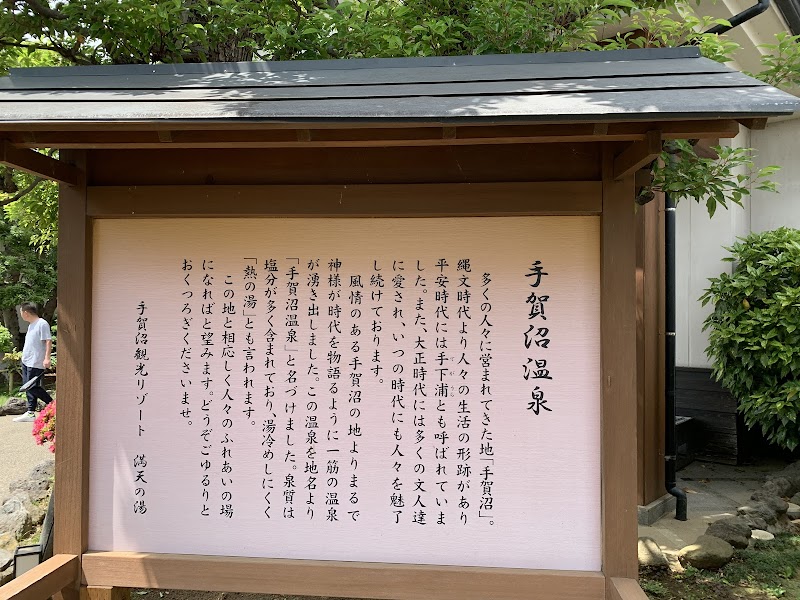 手賀沼温泉
多くの人々に営まれてきた地「手賀沼」。
縄文時代より人々の生活の形跡があり
平安時代には手下浦とも呼ばれていま
てがうら
した。また、大正時代には多くの文人達
に愛され、いつの時代にも人々を魅了
し続けております。
風情のある手賀沼の地よりまるで
神様が時代を物語るように一筋の温泉
が湧き出しました。この温泉を地名より
「手賀沼温泉」と名づけました。泉質は
塩分が多く含まれており、湯冷めしにくく
「熱の湯」とも言われます。
この地と相応しく人々のふれあいの場
になればと望みます。どうぞごゆるりと
おくつろぎくださいませ。
手賀沼観光リゾート 満天の湯